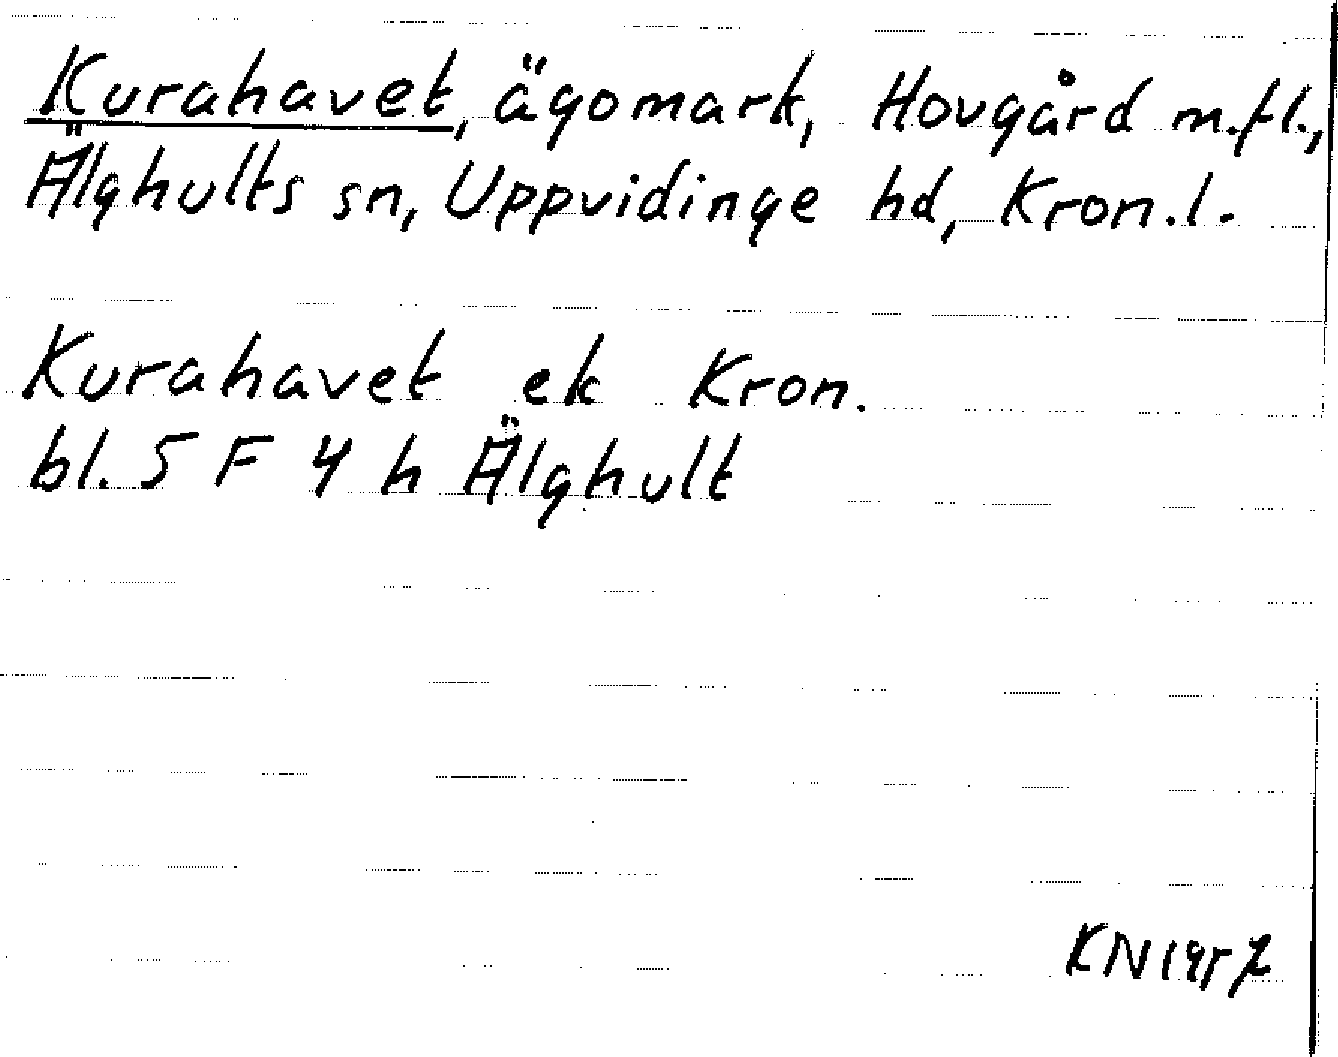 Kurahavet, ägomark, Hovgård m.fl.,
Älghults sn, Uppvidinge hd, Kron.l.
Kurahavet ek Kron.
bl. 5 F 4 h Älghult
KN 1957